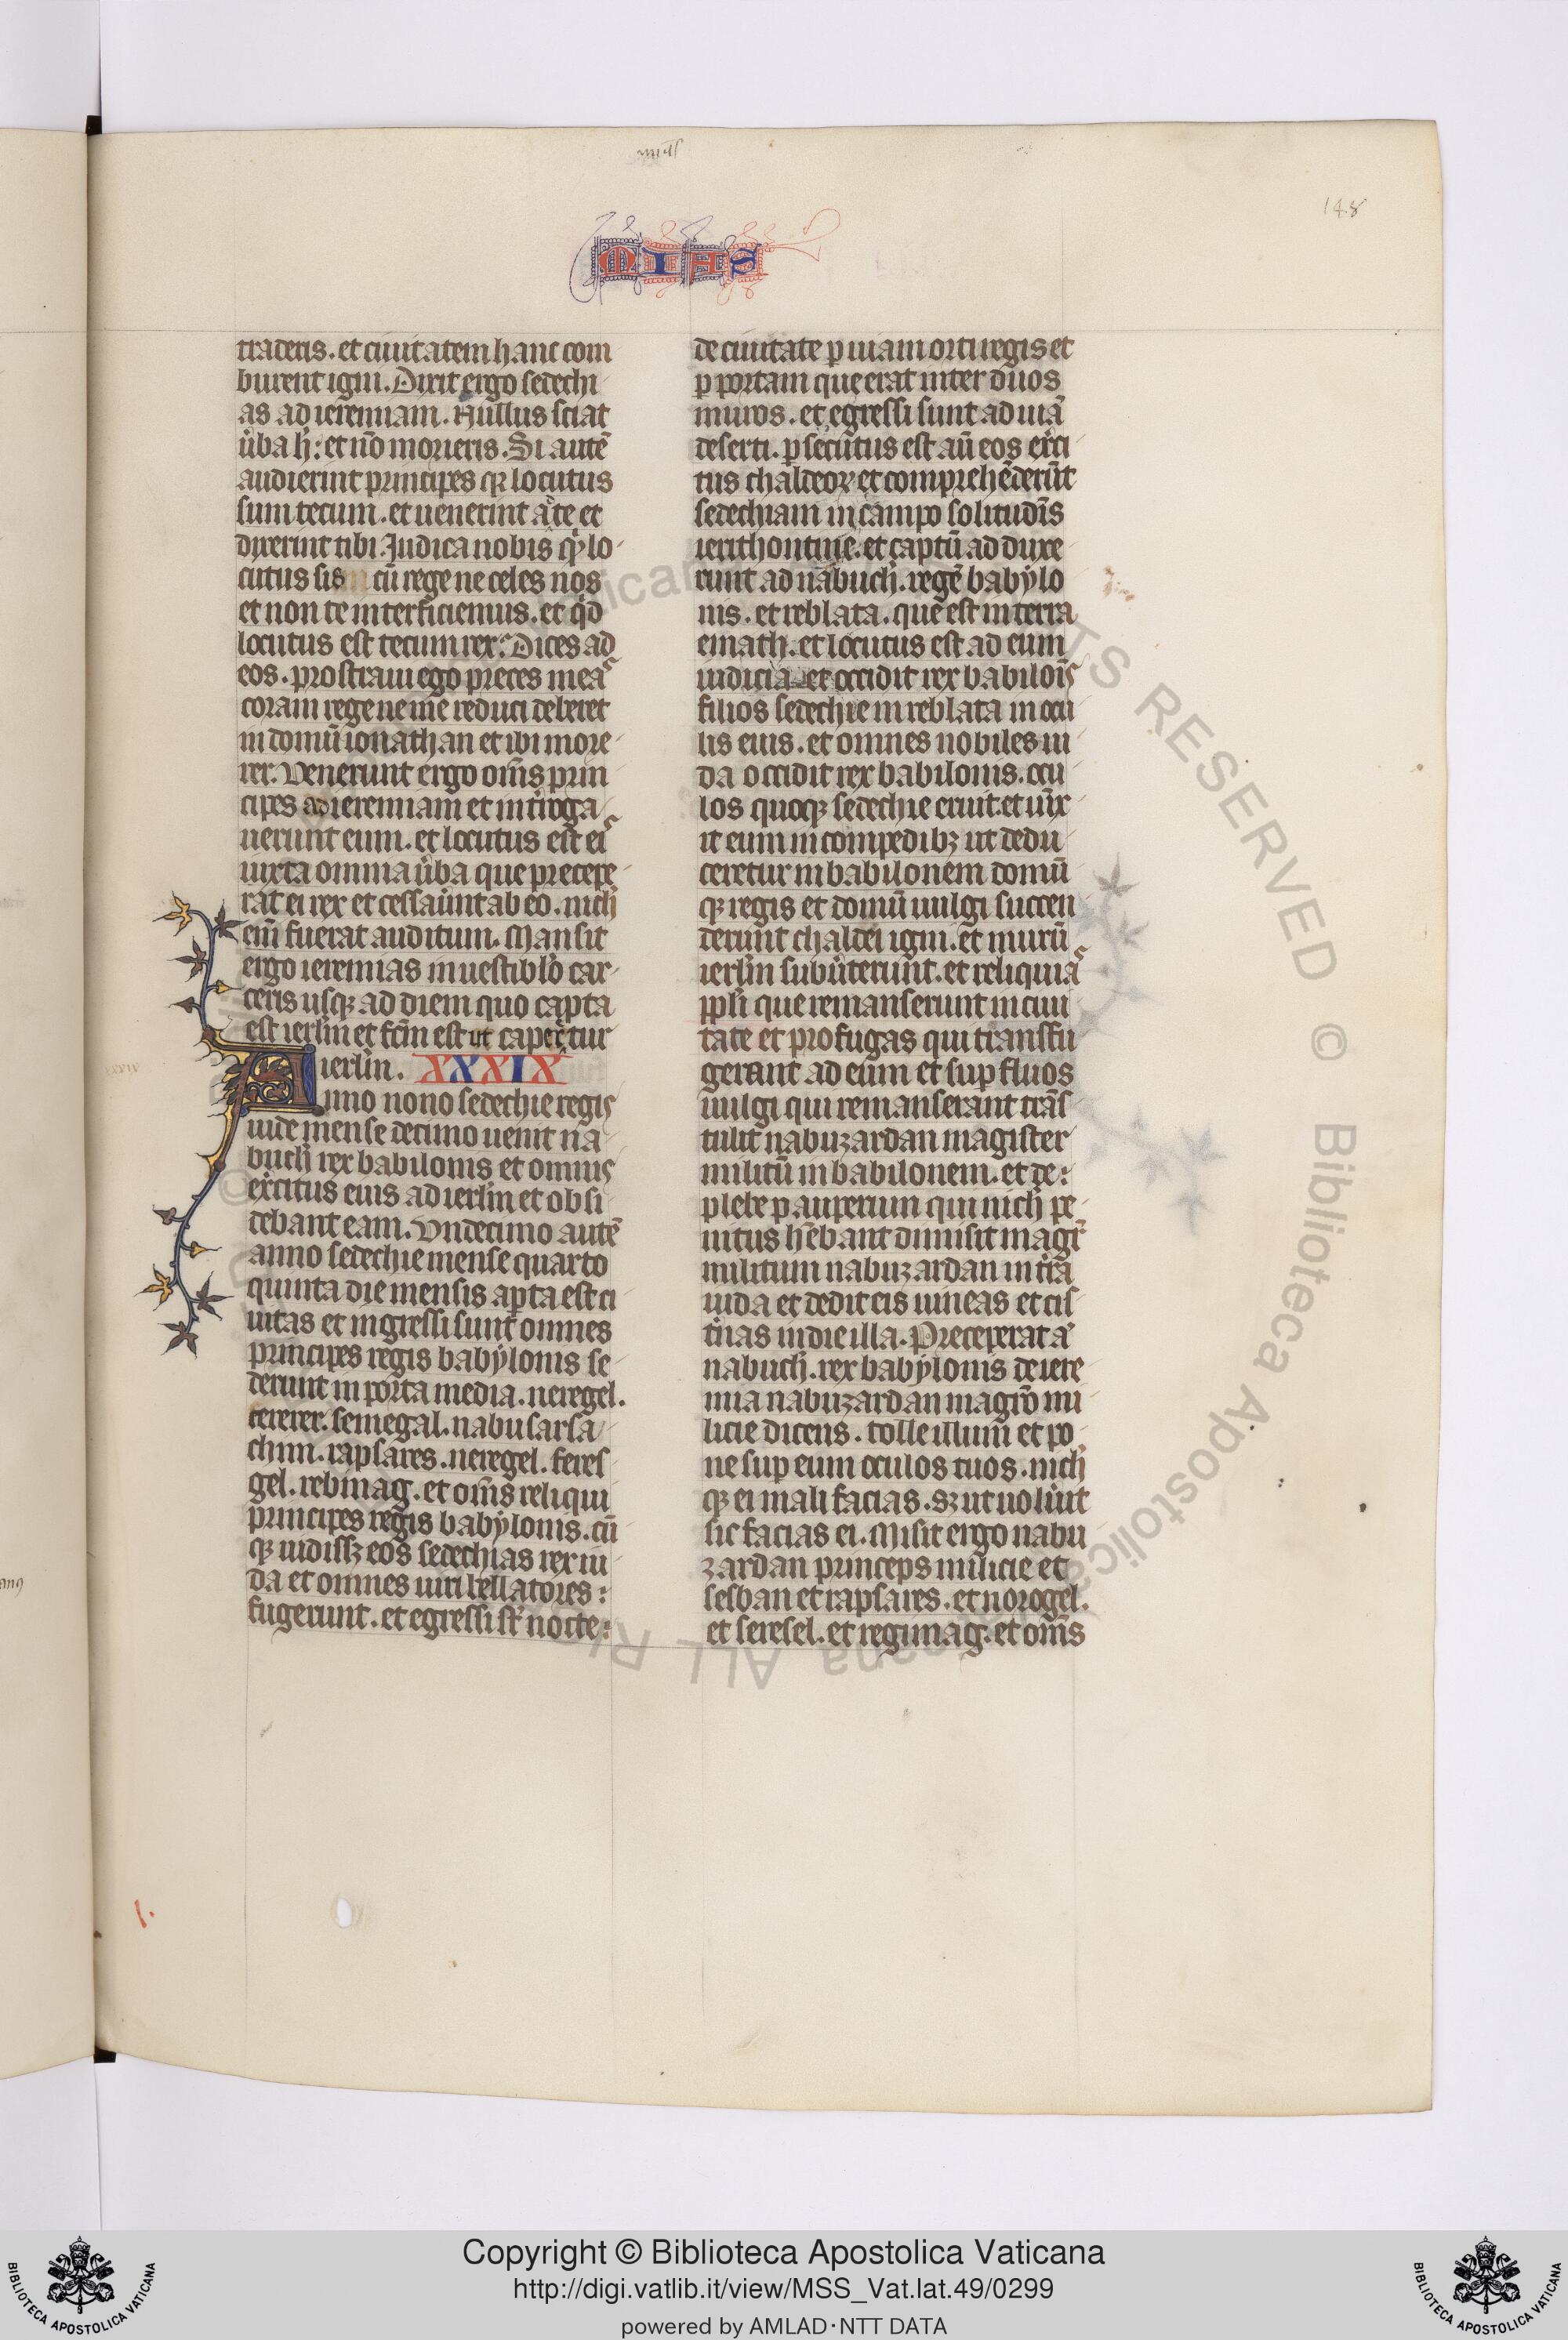 148
MIAS
traderis. et ciuitatem hanc com
burent igni. Dixit ergo sedechi
as ad ieremiam. Nullus sciat
ũba h̃: et nõ morieris. Si autẽ
audierint principes qꝫ locutus
sum tecum. et uenerint a͛te et
dixerint tibi. Iudica nobis qͥ lo
cutus sis cũ rege ne celes nos
et non te interficiemus. et qͥd
locutus est tecum rex: Dices ad
eos. prostraui ego preces meas
coram rege ne me reduci deberet
in domũ ionathan et ibi more
rer. Venerunt ergo om̃s prin
cipes ad ieremiam et int̃roga
uerunt eum. et locutus est eis
iuxta omnia ũba que precepe
rat ei rex et cessaũunt ab eo. nich̃
em̃ fuerat auditum. Mansit
ergo ieremias in uestiblo̾ car
ceris usqꝫ ad diem quo capta
est ierl̃m et fc̃m est ut caper̃tur
ierl̃m. XXXIX
Anno nono sedechie regis
iude mense decimo uenit na
buch̃ rex babilonis et omnis
exc̃itus eius ad ierl̃m et obsi
debant eam. Vndecimo autẽ
anno sedechie mense quarto
quinta die mensis apta est ci
uitas et ingressi sunt omnes
principes regis babylonis se
derunt in porta media. neregel.
cererer. semegal. nabusarsa
chim. rapsares. neregel. feres
gel. rebmag. et om̃s reliqui
principes regis babylonis. cũ
qꝫ uidissꝫ eos sedechias rex iu
da et omnes uiri bellatores:
fugerunt. et egressi st̃ nocte:
de ciuitate ꝑ uiam orti regis et
ꝑ portam que erat inter duos
muros. et egressi sunt ad uiã
deserti. ꝑsecutus est aũ eos exc̃i
tus chaldeoꝝ et comprehẽderũt
sedechiam in campo solitudĩs
ierithontine. et captũ adduxe
runt ad nabuch̃. regẽ babylo
nis. et reblata. que est in terra
emath. et locutus est ad eum
iudicia. et occidit rex babiloĩs
filios sedechie in reblata in ocu
lis eius. et omnes nobiles iu
da occidit rex babilonis. ocu
los quoqꝫ sedechie eruit. et uĩx
it eum in compedibꝫ ut dedu
ceretur in babilonem domũ
qꝫ regis et domũ uulgi succen
derunt chaldei igni. et murũ
ierl̃m subũterunt. et reliquias
pp̃li que remanserunt in ciui
tate et profugas qui transfu
gerant ad eum et suꝑfluos
uulgi qui remanserant trãs
tulit nabuzardan magister
militũ in babilonem. et de:
plebe pauperum qui nich̃ pe
nitus hẽbant dimisit magr̃
militum nabuzardan in tr̃a
iuda et dedit eis uineas et cis
t̃nas in die illa. Preceperat a͛
nabuch̃. rex babylonis de iere
mia nabuzardan magr̃o mi
licie dicens. tolle illum et po
ne suꝑ eum oculos tuos. nich̃
qꝫ ei mali facias. sꝫ ut uolũit
sic facias ei. Misit ergo nabu
zardan princeps milicie et
sesban et rapsares. et norogel.
et seresel. et regimag. et om̃s
Copyright © Biblioteca Apostolica Vaticana
http://digi.vatlib.it/view/MSS_Vat.lat.49/0299
powered by AMLAD·NTT DATA
BIBLIOTECA APOSTOLICA VATICANA
BIBLIOTECA APOSTOLICA VATICANA